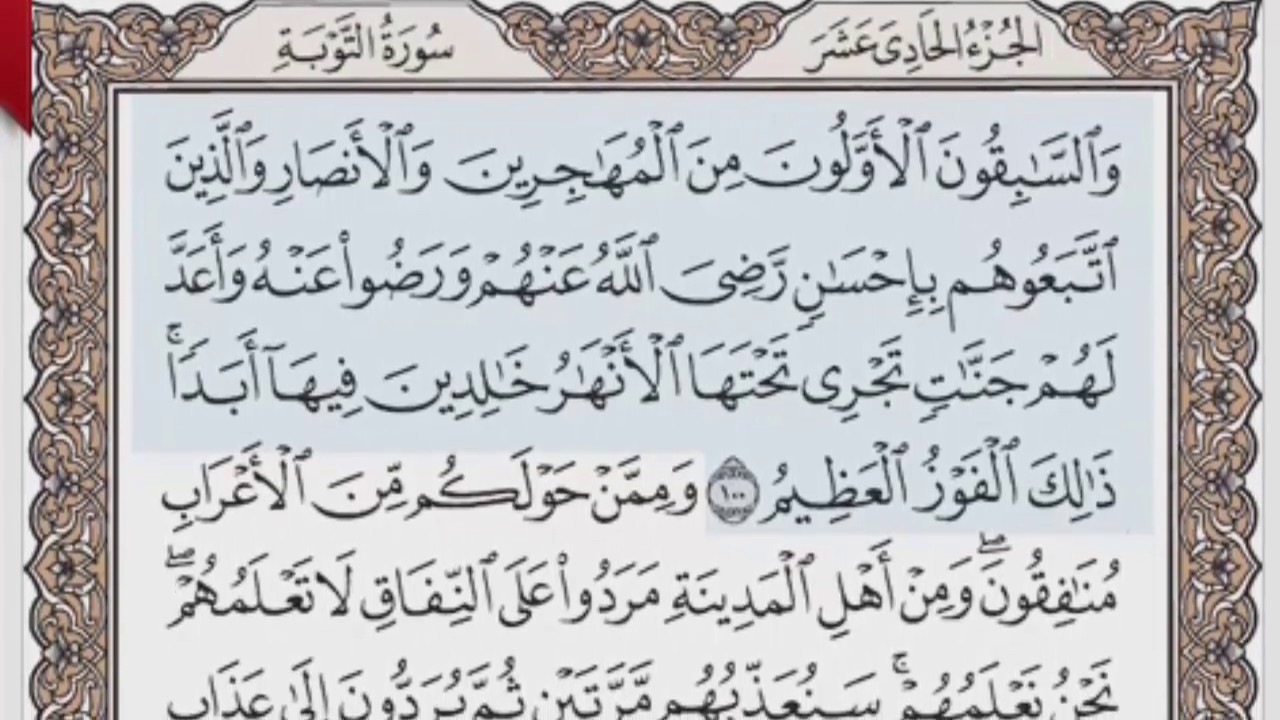 الجُزْءُ الحَادِى عَشَرَ
سُورَةُ التَّوْبَةِ
وَٱلسَّـٰبِقُونَ ٱلْأَوَّلُونَ مِنَ ٱلْمُهَـٰجِرِينَ وَٱلْأَنصَارِ وَٱلَّذِينَ
ٱتَّبَعُوهُم بِإِحْسَـٰنٍ رَّضِىَ ٱللَّهُ عَنْهُمْ وَرَضُوا۟ عَنْهُ وَأَعَدَّ
لَهُمْ جَنَّـٰتٍ تَجْرِى تَحْتَهَا ٱلْأَنْهَـٰرُ خَـٰلِدِينَ فِيهَآ أَبَدًا ۚ
ذَٰلِكَ ٱلْفَوْزُ ٱلْعَظِيمُ ١٠٠ وَمِمَّنْ حَوْلَكُم مِّنَ ٱلْأَعْرَابِ
مُنَـٰفِقُونَ ۖ وَمِنْ أَهْلِ ٱلْمَدِينَةِ مَرَدُوا۟ عَلَى ٱلنِّفَاقِ لَا تَعْلَمُهُمْ ۖ
نَحْنُ نَعْلَمُهُمْ ۚ سَنُعَذِّبُهُم مَّرَّتَيْنِ ثُمَّ يُرَدُّونَ إِلَىٰ عَذَابٍ